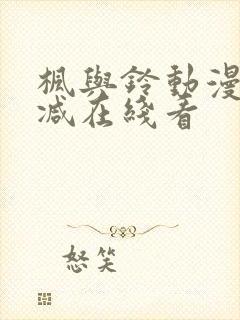 楓與鈴動漫
減在綫看
怒笑